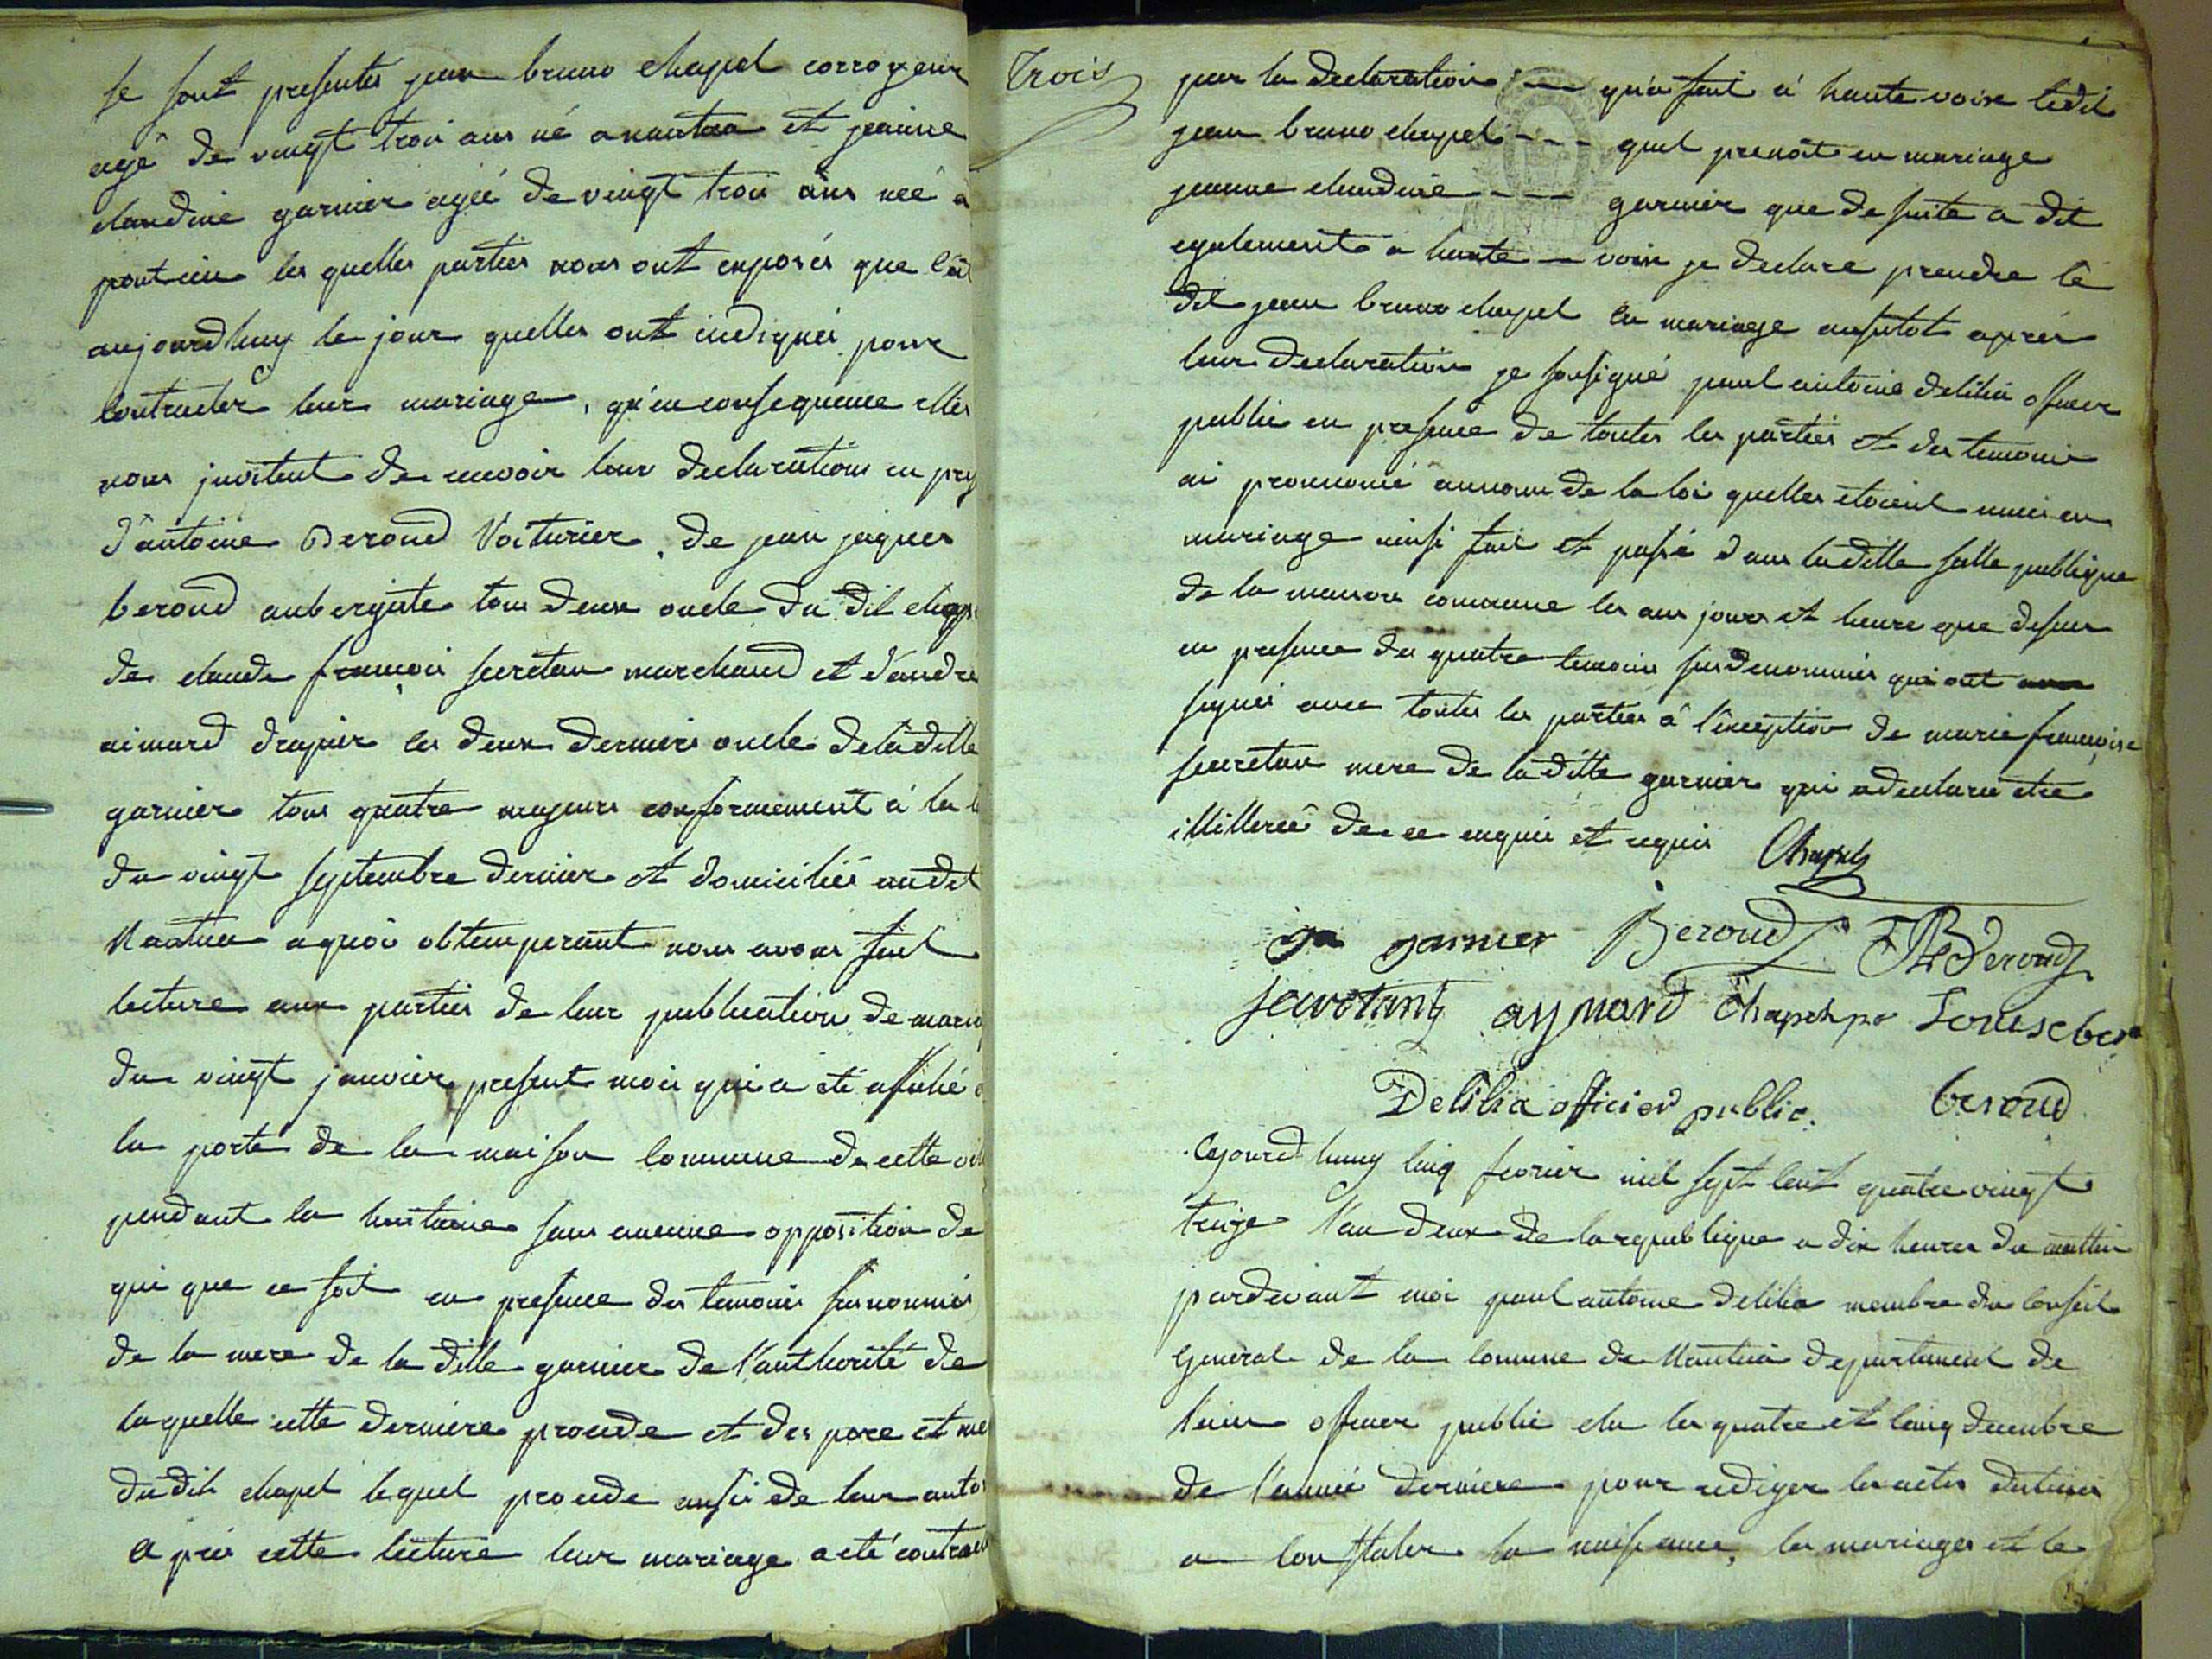 se sont presentés jean bruno chapel corroyeur
agé de vingt trois ans né a nantua et jeanne
claudine garnier agée de vingt trois ans neé a
les quelles parties nous ont exposés que
aujourdhuy le jour quelles ont indiqués pour
contracter leur mariage, qu'en consequence elles
nous invitent de recevoir leur declarations en
d'antoine Beroud Voiturier, de jean jaques
beroud aubergiste tous deux oncle du dit
de claude françois secretan marchand et d'andre
aimard drapier les deux derniers oncle de la ditte
garnier tous quatre majeurs conformement à la
du vingt septembre dernier et domiciliés audit
Nantua aquoi obtemperant nous avons fait
lecture aux parties de leur publication de
du vingt janvier present mois qui a eté afiché
la porte de la maison commune de cette
pendant la huitaine sans aucune opposition de
qui que ce soit en presence des temoins susnommés
de la mere de la ditte garnier de l'authorité de
laquelle cette derniere procede et des pere et
dudit chapel lequel procede aussi de leur
après cette lecture leur mariage a eté
Trois
par la declaration --- qu'a fait à haute voix ledit
jean bruno chapel --- quel prenoit en mariage
jeanne claudine --- garnier que de suite a dit
egalement a haute — voix je declare prendre le
dit jean bruno chapel en mariage aussitot après
leur declaration je sousigné paul antoine delilia officier
public en presence de toutes les parties et des temoins
ai prononcé aunom de la loi quelles etoient unies en
mariage ainsi fait et passé dans laditte salle publique
de la maison commune les ans jours et heure que dessus
en presence des quatre temoins susdenommés qui ont
signés avec toutes les parties à l'exception de marie françoise
secretan mere de laditte garnier qui a declaré etre
illitterée de ce enquis et requis Chapel
garnier Beroud Beroud
secretant aymard Chapel pere Louise
Delilia officier public. beroud
Cejourd'huy cinq fevrier mil sept cent quatre vingt
treize l'an deux de la republique a dix heures du mattin
pardevant moi paul antoine delilia membre du conseil
general de la commune de Nantua departement de
l'ain officier public elu les quatre et cinq decembre
de l'année derniere pour rediger les actes destinés
a constater la naissance, les mariages et le